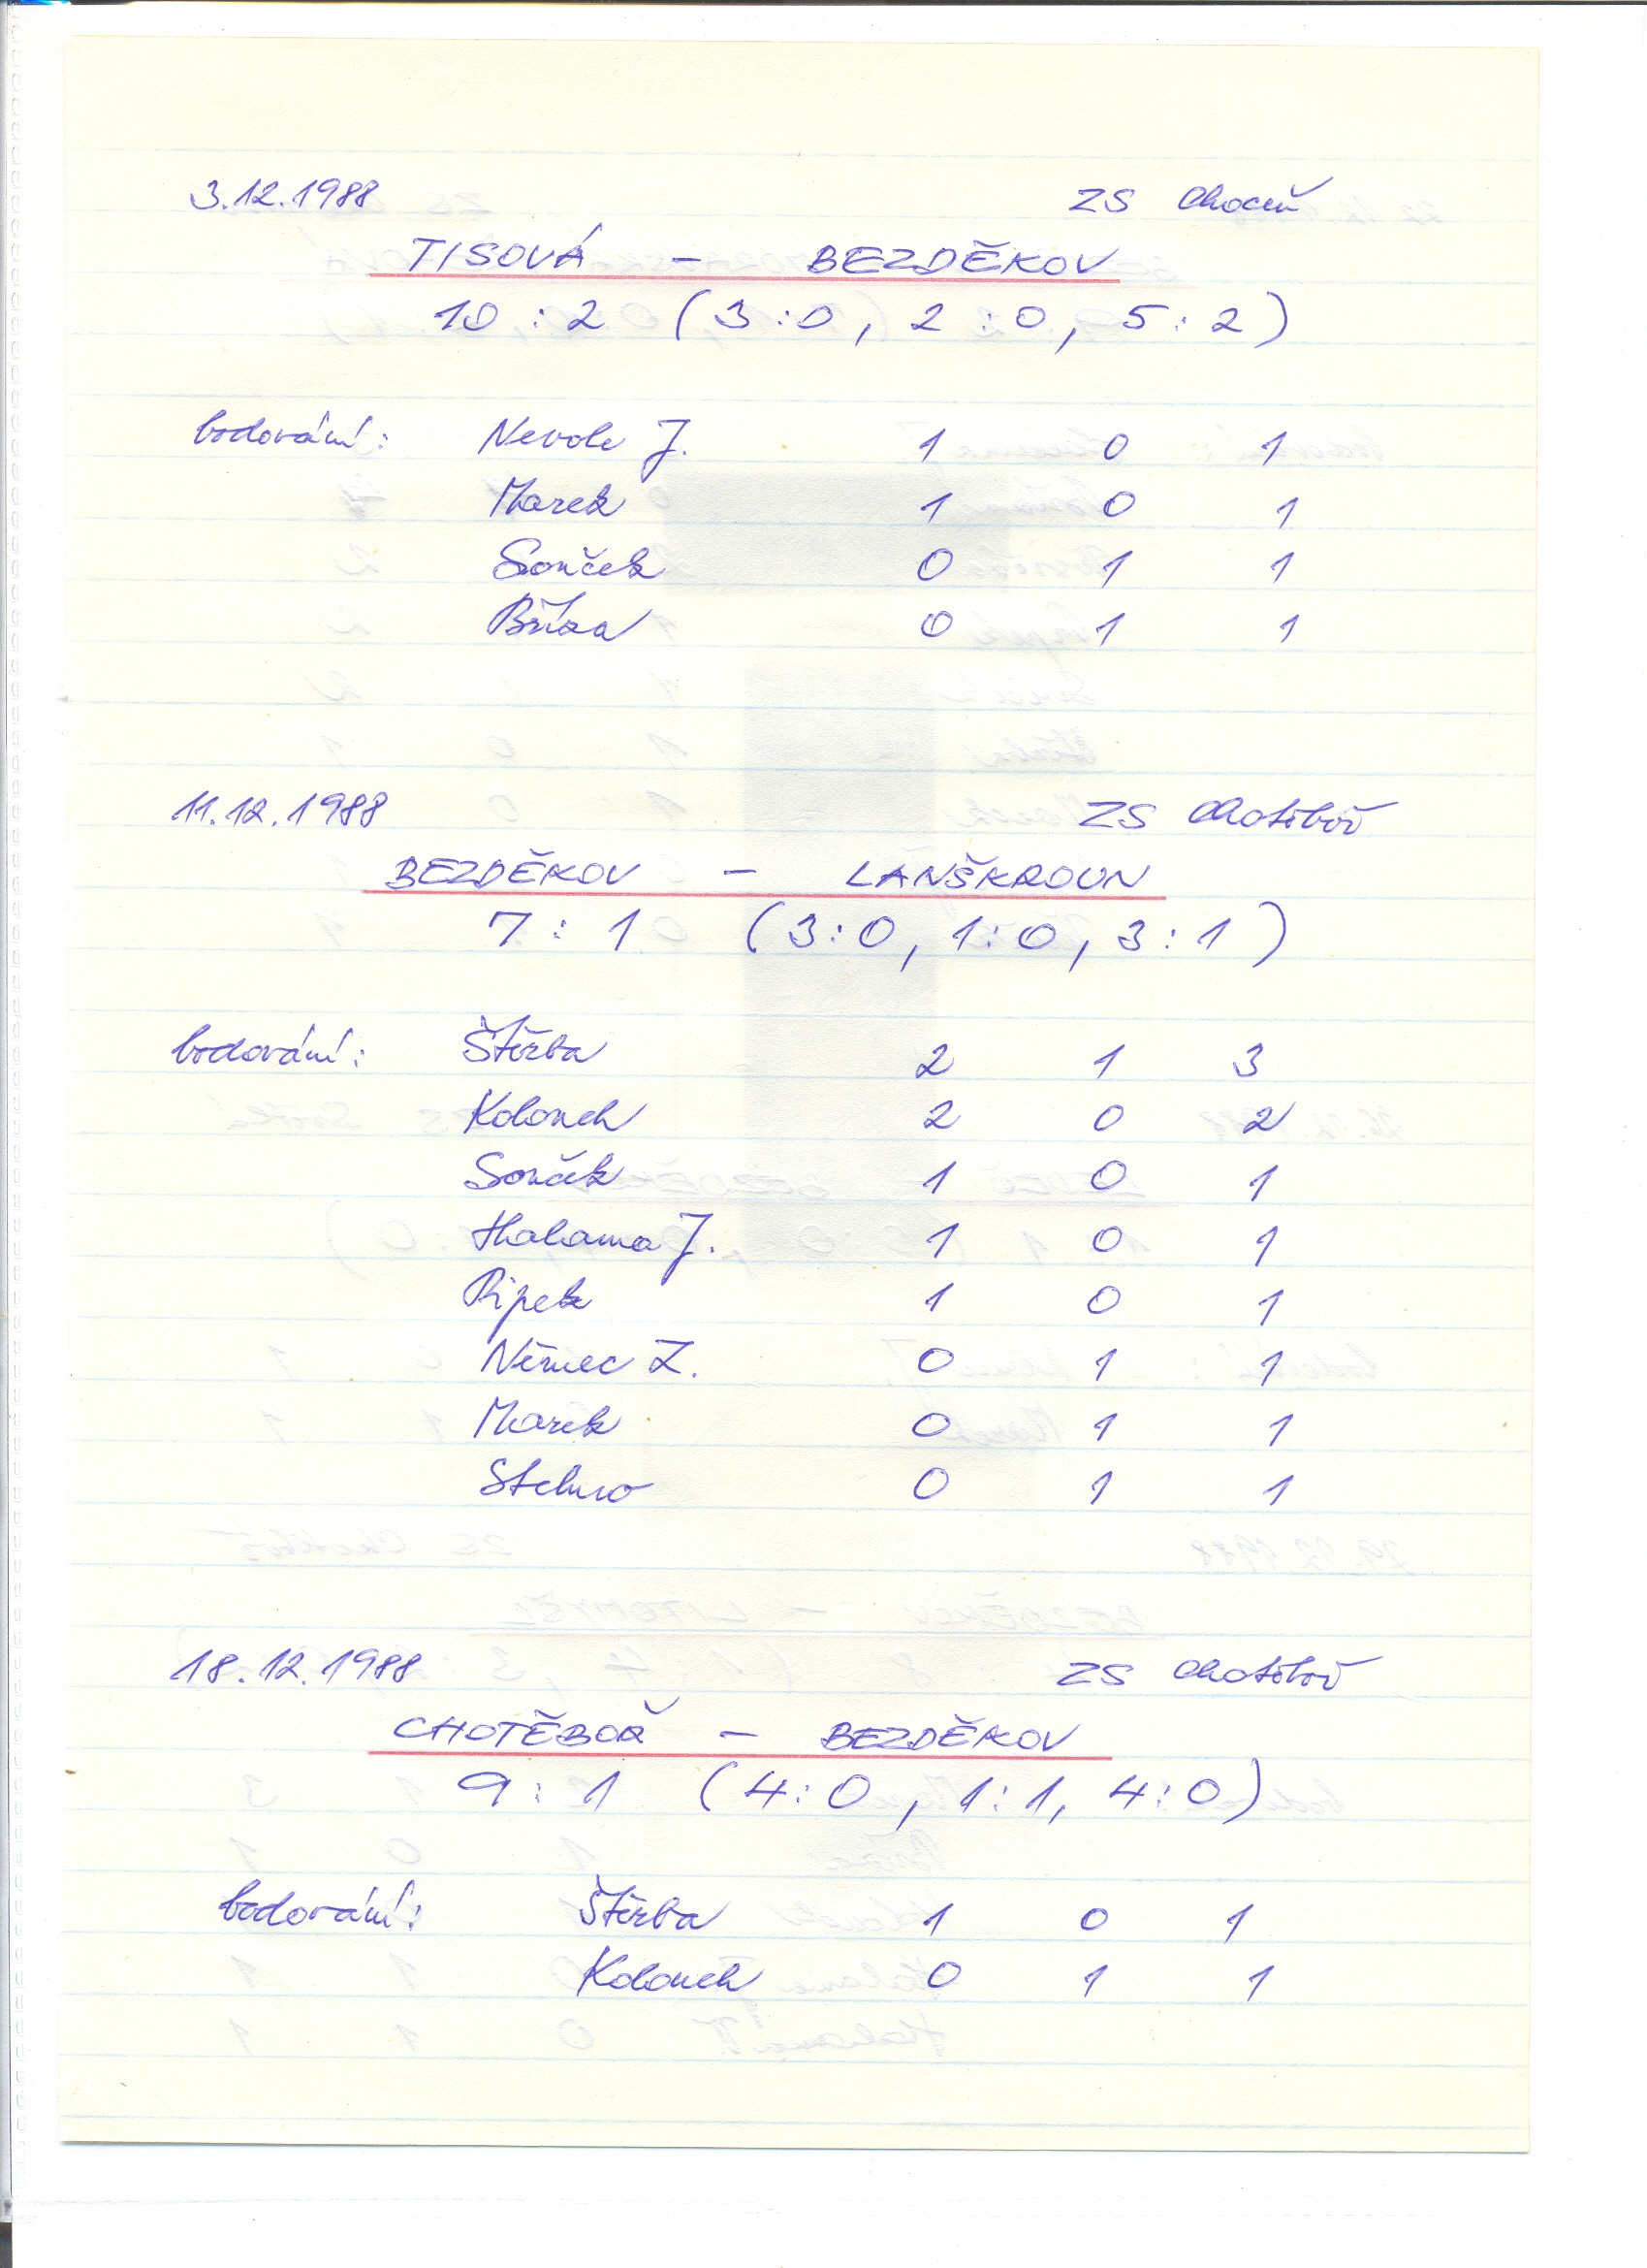 3.12.1988 ZS Choceň
TISOVÁ - BEZDĚKOV
10 : 2 (3:0, 2:0, 5:2)
bodování: Nevole J. 1 0 1
Marek 1 0 1
Souček 0 1 1
Bříza 0 1 1
11.12.1988 ZS Chotěboř
BEZDĚKOV - LANŠKROUN
7 : 1 (3:0, 1:0, 3:1)
bodování: Štěrba 2 1 3
Kolouch 2 0 2
Souček 1 0 1
Halama J. 1 0 1
Pipek 1 0 1
Němec Z. 0 1 1
Marek 0 1 1
Stehno 0 1 1
18.12.1988 ZS Chotěboř
CHOTĚBOŘ - BEZDĚKOV
9 : 1 (4:0, 1:1, 4:0)
bodování: Štěrba 1 0 1
Kolouch 0 1 1